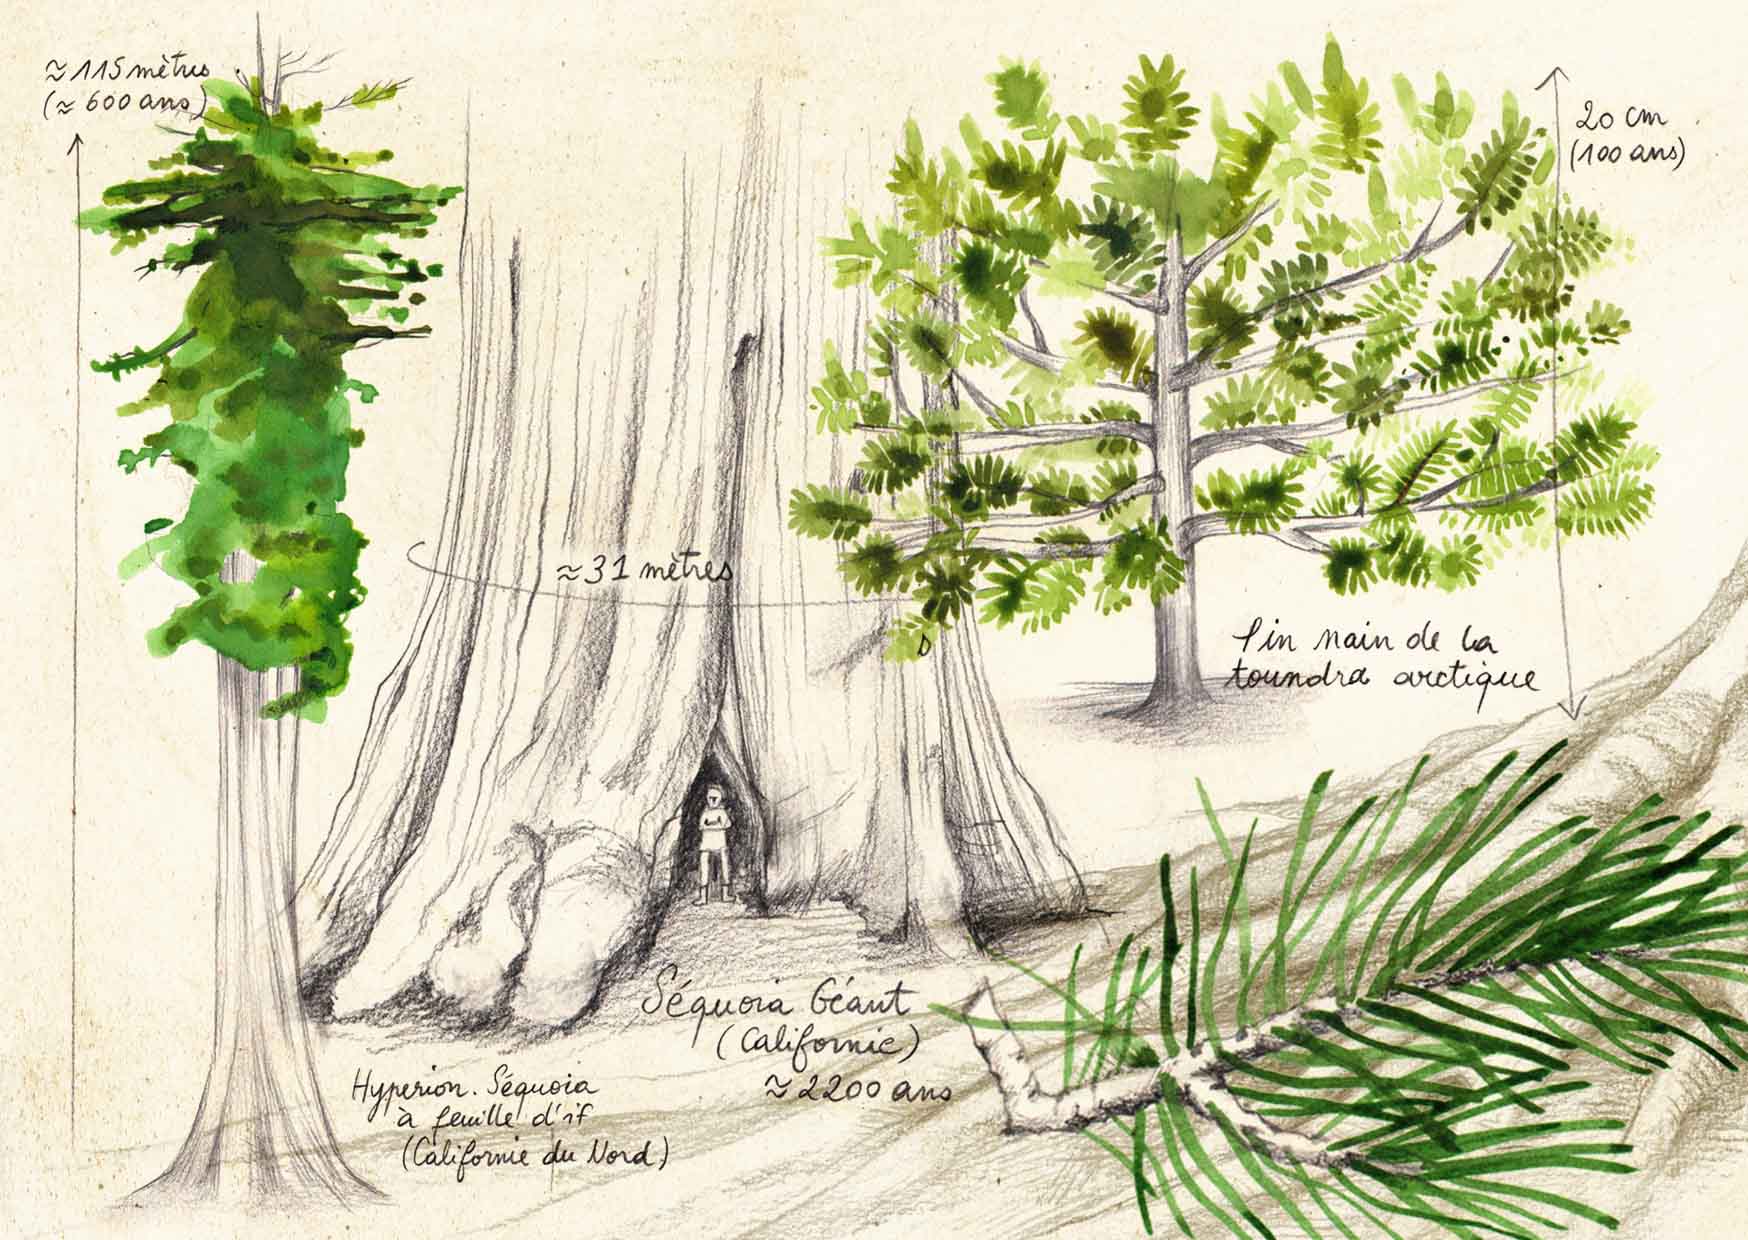 ≈ 115 mètres
(≈ 600 ans)
20 cm
(100 ans)
≈ 31 mètres
Pin nain de la
toundra arctique
Séquoia Géant
(Californie)
≈ 2200 ans
Hyperion. Séquoia
à feuille d'if
(Californie du Nord)